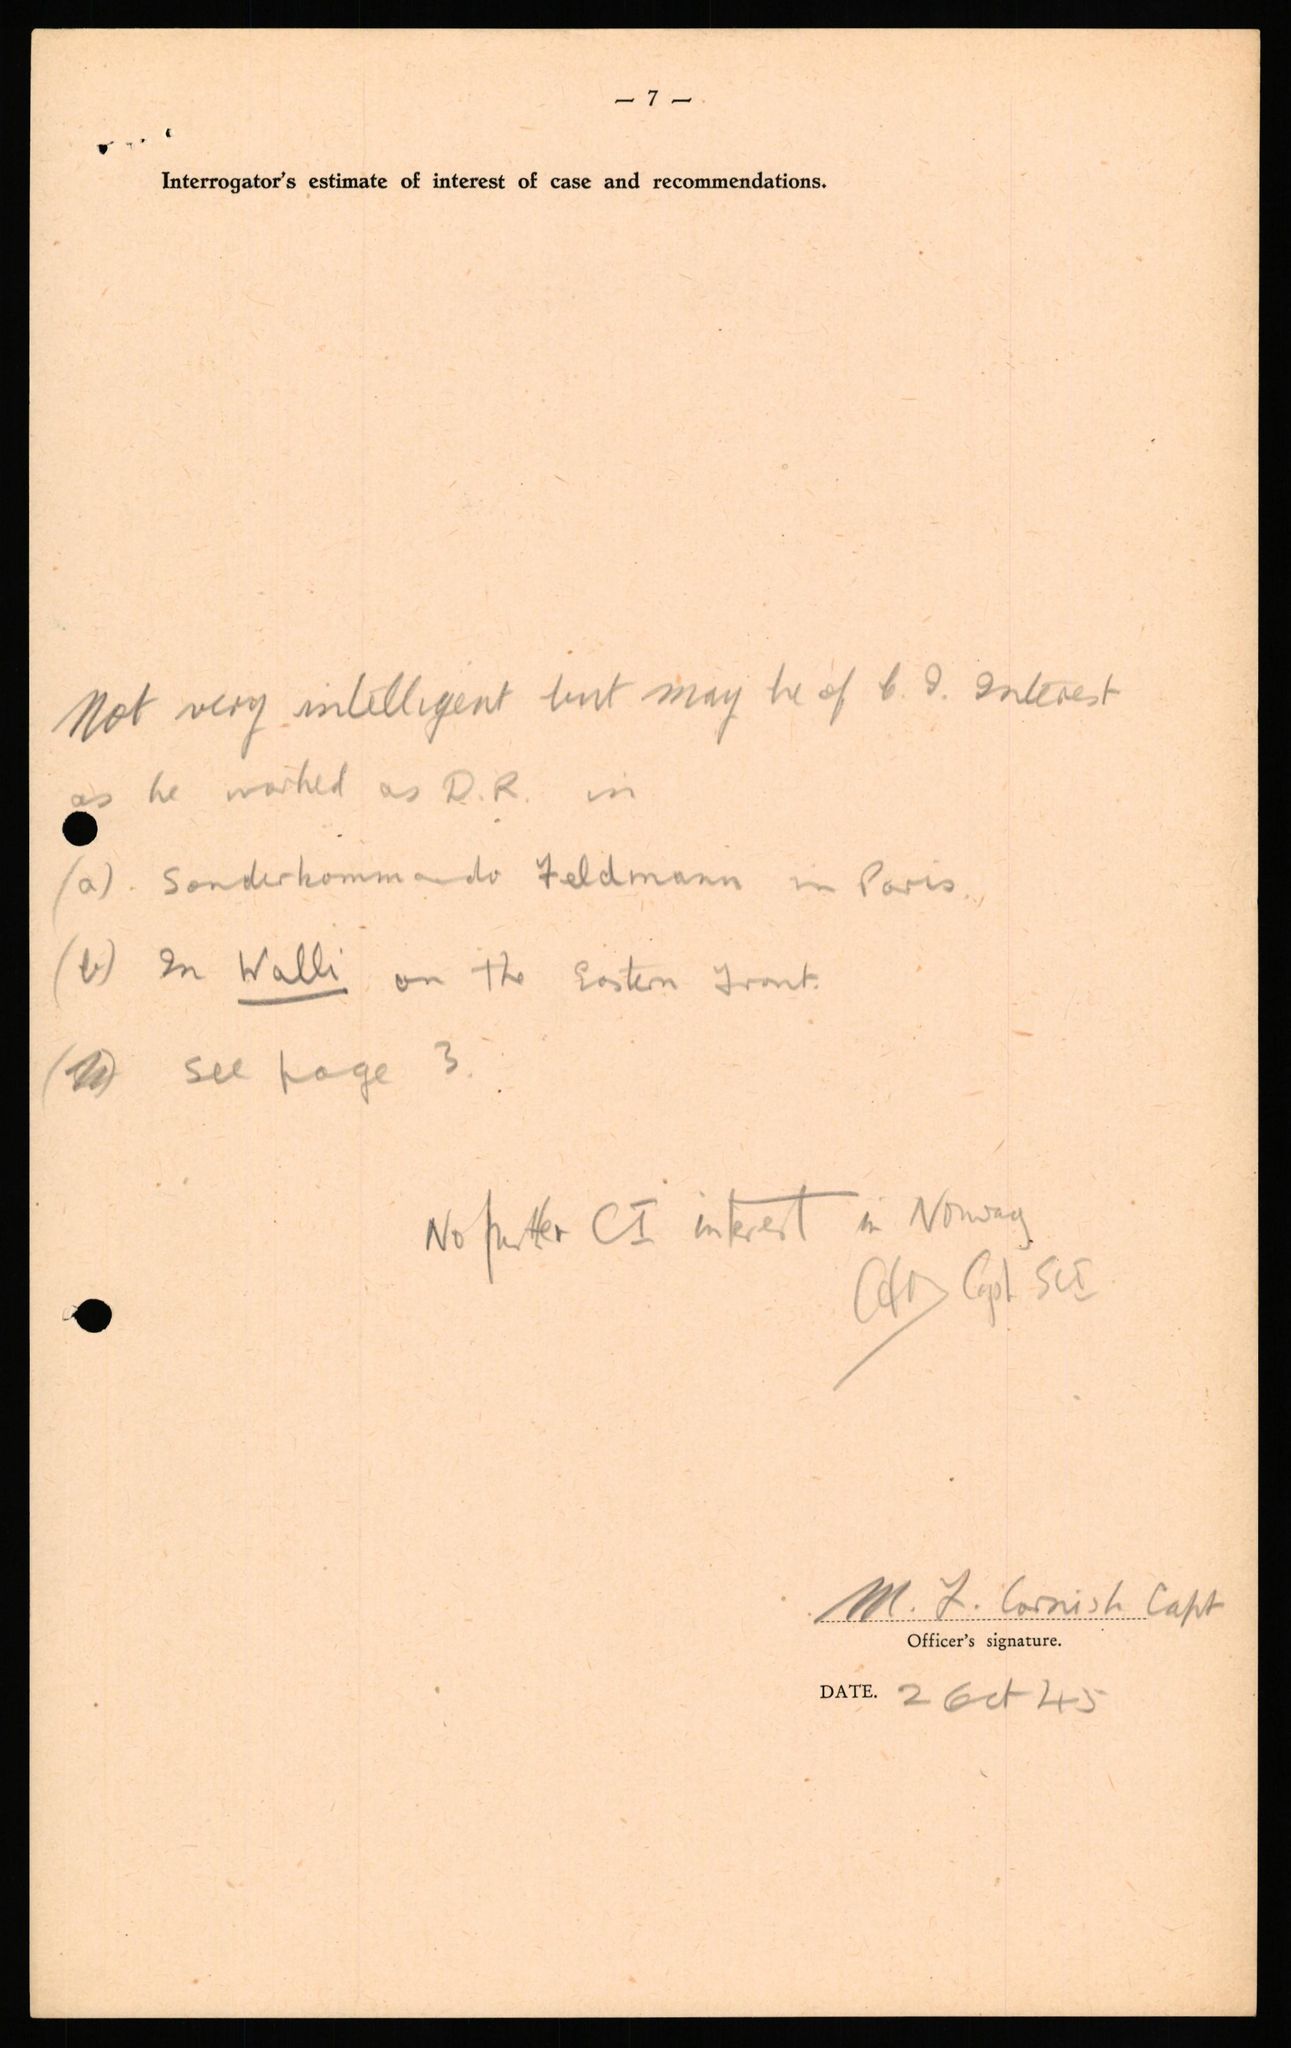 — 7 —
Interrogator's estimate of interest of case and recommendations.
Not very intelligent but may be of C.I. Interest
as he worked as D.R. in
(a). Sonderkommando Feldmann in Paris.
(b) In Walli on the Eastern Front.
See page 3.
No further CI interest in Norway
Capt SCI
M. F. Cornish Capt
Officer's signature.
DATE. 2 Oct 45